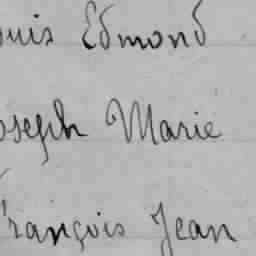 ouis Edmond
oseph Marie
François Jean